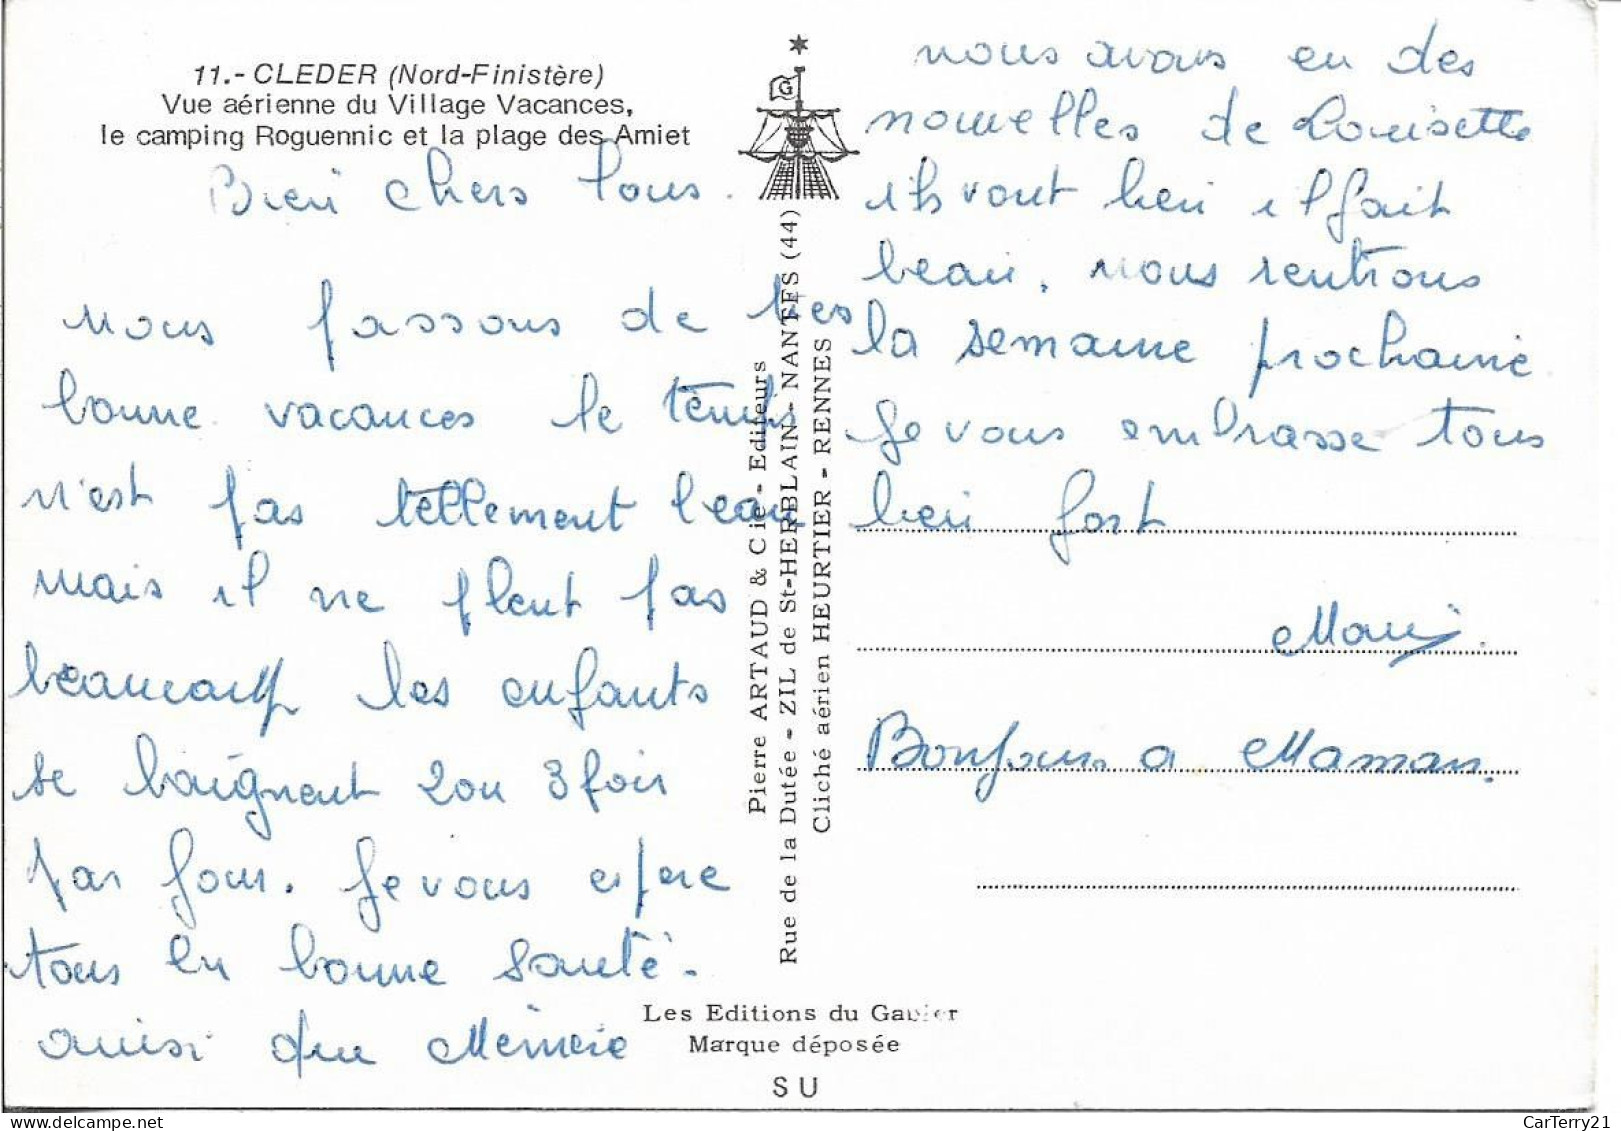 11.- CLEDER (Nord-Finistère)
Vue aérienne du Village Vacances,
le camping Roguennic et la plage des Amiet
Bien chers tous.
nous passons de tres
bonne vacances le temps
n'est pas tellement beau
mais il ne pleut pas
beaucoup les enfants
se baignent 2 ou 3 fois
par jour. Je vous espere
tous en bonne santé.
ainsi que Mémère
nous avons eu des
nouvelles de Louisette
ils vont bien il fait
beau, nous rentrons
la semaine prochaine
Je vous embrasse tous
bien fort
Bonjour a Maman.
Pierre ARTAUD & Cie - Editeurs
Rue de la Dutée - ZIL de St-HERBLAIN - NANTES (44)
Cliché aérien HEURTIER - RENNES
G
Les Editions du Gabier
Marque déposée
SU
CarTerry21